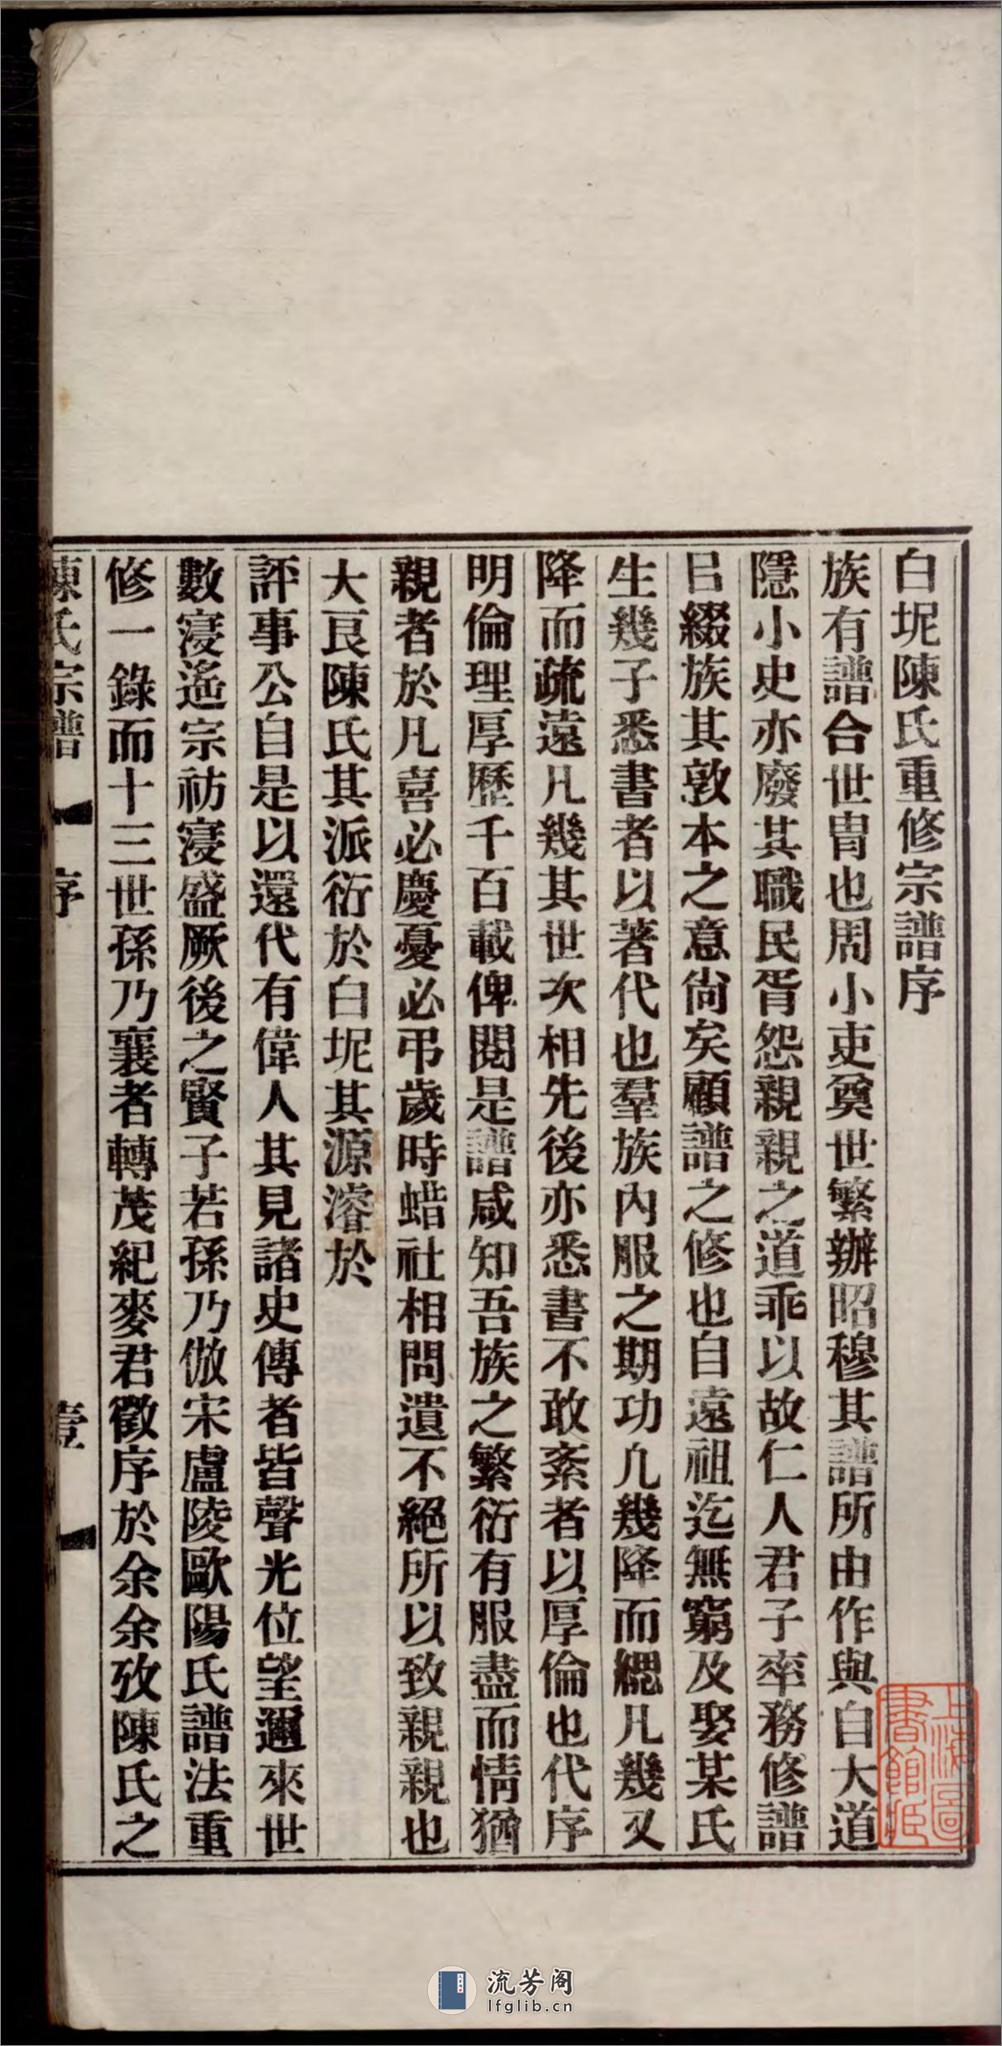 白坭陳氏重修宗譜序
族有譜合世胄也周小吏奠世繁辦昭穆其譜所由作與自大道
隱小史亦廢其職民胥怨親親之道乖以故仁人君子率務修譜
㠯綴族其敦本之意尙矣顧譜之修也自遠祖迄無窮及娶某氏
生幾子悉書者以著代也羣族內服之期功凡幾降而緦凡幾又
降而疏遠凡幾其世次相先後亦悉書不敢紊者以厚倫也代序
明倫理厚歷千百載俾閱是譜咸知吾族之繁衍有服盡而情猶
親者於凡喜必慶憂必弔歲時蜡社相問遺不絕所以致親親也
大良陳氏其派衍於白坭其源濬於
評事公自是以還代有偉人其見諸史傳者皆聲光位望邇來世
數寖遙宗祊寖盛厥後之賢子若孫乃倣宋盧陵歐陽氏譜法重
修一錄而十三世孫乃襄者轉茂紀麥君徵序於余余攷陳氏之
陳氏宗譜 序 壹
上海圖書館藏
流芳阁
lfglib.cn